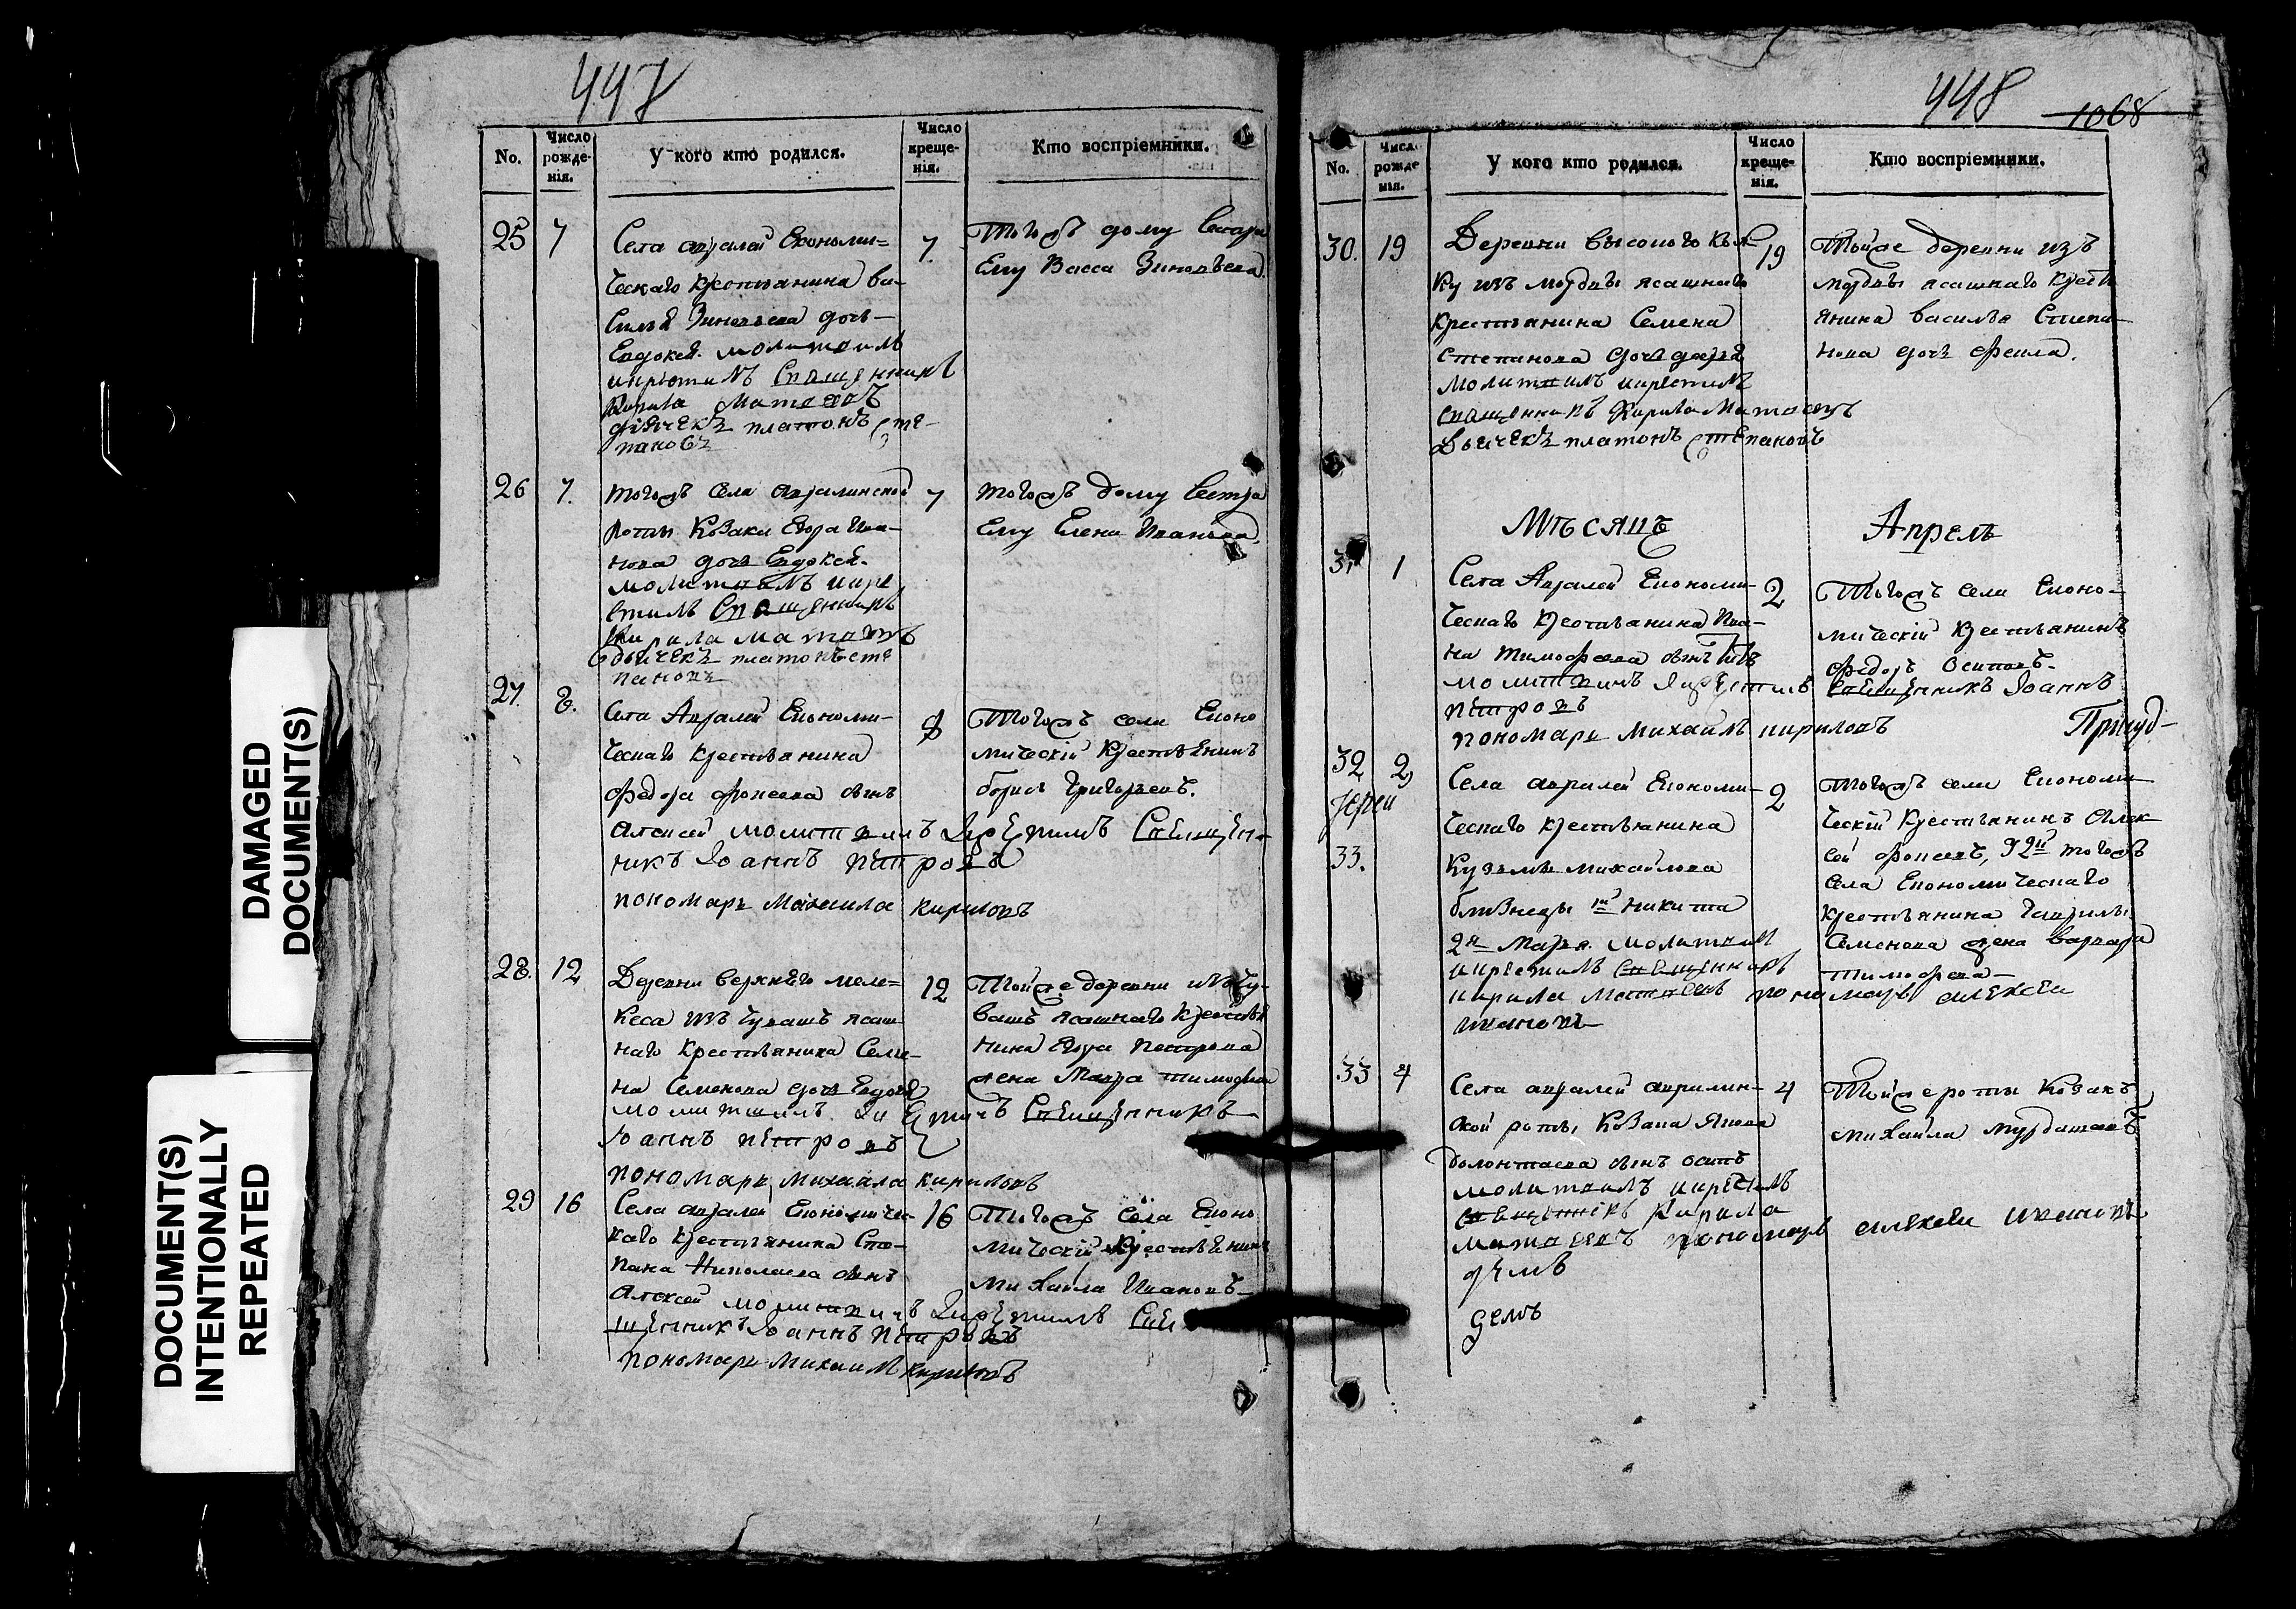 DAMAGED
DOCUMENT(S)
DOCUMENT(S)
INTENTIONALLY
REPEATED
447
No.
Число рожде-нія.
У кого кто родился.
Число креще-нія.
Кто воспріемники.
25 7
Села авралей Економи=
ческаго крестьянина ва-
силья Зиновьева дочь
Евдокея. молитвилъ
икрестилъ священникъ
Кирила Матвеевъ
дьячекъ платонъ сте-
пановъ
7.
Тогожъ дому сестра
Ему Васса Зиновьева
26 7.
тогожъ села авралинской
роты Козака Егора Ива-
нова дочь Евдокея.
молитвилъ икре
стилъ священникъ
Кирила матвеевъ
дьячекъ платонъ сте
пановъ
7
тогожъ дому сестра
Ему Елена Иванова.
27. 8.
Села Авралей Економи-
ческаго крестьянина
федора фокеева сынъ
алексей молитвилъ Икрестилъ Священ-
никъ Iоаннъ петровъ
пономарь Михаила кириловъ
8
Тогожъ села Еконо
мический крестьянинъ
борисъ Григорьевъ.
28. 12
Деревни верхнего меле=
кеса изъ Чувашъ ясаш-
наго крестьянина Семе-
на Семенова дочь Евдокея
молитвилъ Икрестилъ Священникъ
Iоаннъ петровъ
пономарь Михаила кириловъ
12
Тойже деревни изъ чу-
вашъ ясашнаго крестья
нина Егора Петрова
жена Мавра тимофеева
29 16
Села авралей Економиче-
каго крестьянина Сте-
пана Николаева сынъ
Алексей молитвилъ Икрестилъ Свя
щенникъ Iоаннъ петровъ
пономарь Михаилъ кириловъ
16
Тогожъ села Еконо
мический крестьянинъ
Михаила Ивановъ
448
1068
No.
Число рожде нія.
У кого кто родился.
Число креще-нія.
Кто воспріемники.
30. 19
Деревни высокого
ку изъ мордвы ясашнаго
крестьянина Семена
степанова дочь дарья
молитвилъ икрестилъ
священникъ Кирила Матвеевъ
Дьячекъ платонъ степановъ
19
Тойже деревни изъ
мордвы ясашнаго крестья
янина василья Степа-
нова дочь фекла.
Мѣсяцъ Апрель
31 1
Села Авралей Економи-
ческаго крестьянина Ива-
на тимофеева сынъ
молитвилъ Икрестилъ священникъ Iоаннъ
петровъ
пономарь Михаилъ кириловъ
2
Тогожъ села Еконо-
мический крестьянинъ
федоръ Осиповъ.
32 2
Iерей
33.
Села авралей Економи-
ческаго крестьянина
Кузьмы михайлова
близнецы 1й Никита
2я Марья. молитвилъ
икрестилъ священникъ
кирила Матвеевъ пономарь алексеи
ивановъ
2
тогожъ села Економи
ческій крестьянинъ Алек
сей фокеевъ, У 2й тогожъ
села Економическаго
крестьянина Гаврилы
Семенова жена варвара
тимофеева
33 4
Села авралей авралин-
ской роты Козака Якова
сынъ осипъ
молитвилъ икрестилъ
священникъ Кирила
матвеевъ пономарь алексеи ивановъ
4
Тойже роты Козакъ
Михайла